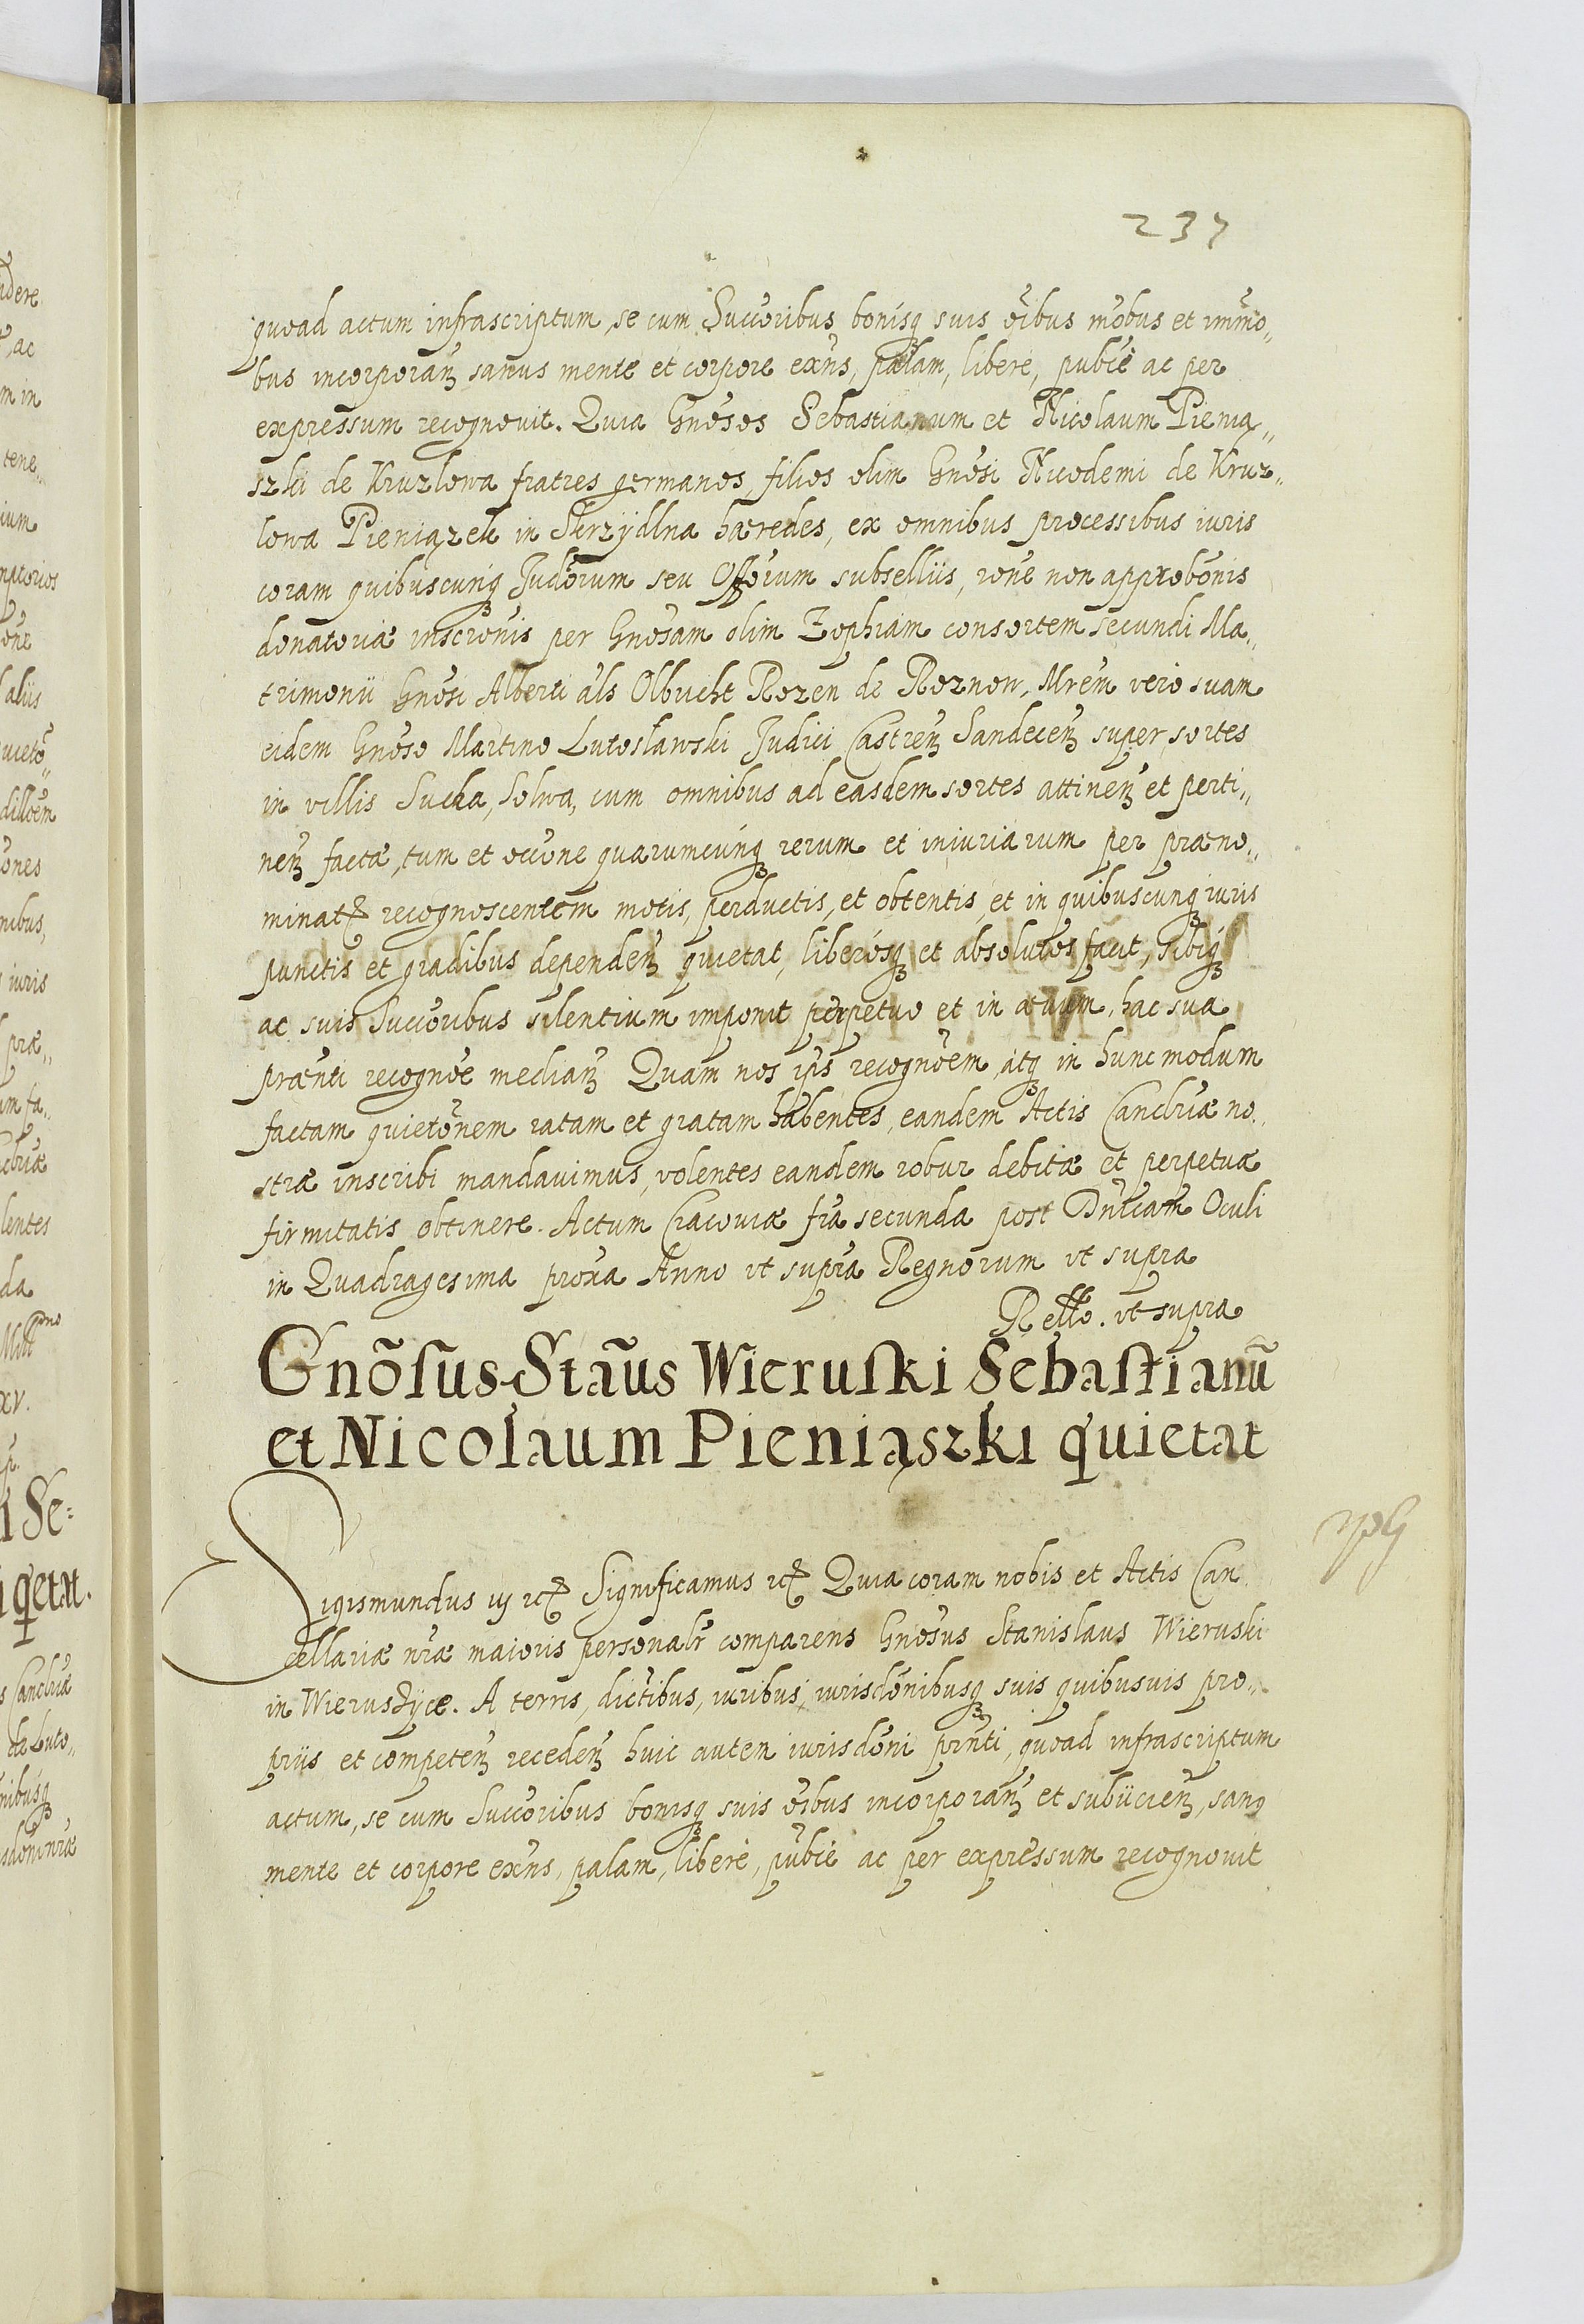 237
quoad actum infrascriptum, se cum Succoribus bonisq suis oibus mobus et immo„
bus incorporan sanus mente et corpore exns, palam, libere, publce ac per
expressum recognovit. Quia Gnosos Sebastianum et Nicolaum Pienią„
szki de Kruzlowa fratres germanos, filios olim Gnosi Nicodemi de Kruz„
lowa Pieniązek in Skrzÿdlna hæredes, ex omnibus processibus iuris
coram quibuscunq Judorum seu Offorum subselliis, rone non approbonis
donatoriæ inscronis per Gnosam olim Zophiam consortem secundi Ma„
trimonii Gnosi Alberti als Olbricht Rozen de Roznow, Mrem vero suam
eidem Gnoso Martino Lutosławski Judici Castren Sandecen super sortes
in villis Sucha, Solwa, cum omnibus ad easdem sortes attinen et perti„
nen factæ, tum et occone quarumcunq rerum et iniuriarum per præno„
minat recognoscentem motis, perductis, et obtentis, et in quibuscunq iuris
punctis et gradibus dependen quietat, liberosq et absolutos facit, sibiq
ac suis Succoribus silentium imponit perpetuo et in ævum, hac sua
prænti recognoe median Quam nos ips recognoem, atq in hunc modum
factam quietonem ratam et gratam habentes, eandem Actis Canclriæ no„
stræ inscribi mandavimus, volentes eandem robur debitæ et perpetuæ
firmitatis obtinere. Actum Cracoviæ fia secunda post Dnicam Oculi
in Quadragesima proxa Anno ut supra Regnorum ut supra
Rello. ut supra
Gnõsus Stãus Wieruski Sebastianũ
et Nicolaum Pieniąszki quietat
Sigismundus iij rc Significamus rc Quia coram nobis et Actis Can
cellariæ nræ maioris personalr comparens Gnosus Stanislaus Wieruski
in Wierusÿce. A terris, dictibus, iuribus, iurisdonibusq suis quibusvis pro„
priis et competen receden huic autem iurisdoni prnti, quoad infrascriptum
actum, se cum Succoribus bonisq suis oibus incorporan et subiicien, sang
mente et corpore exns, palam, libere, publce ac per expressum recognovit